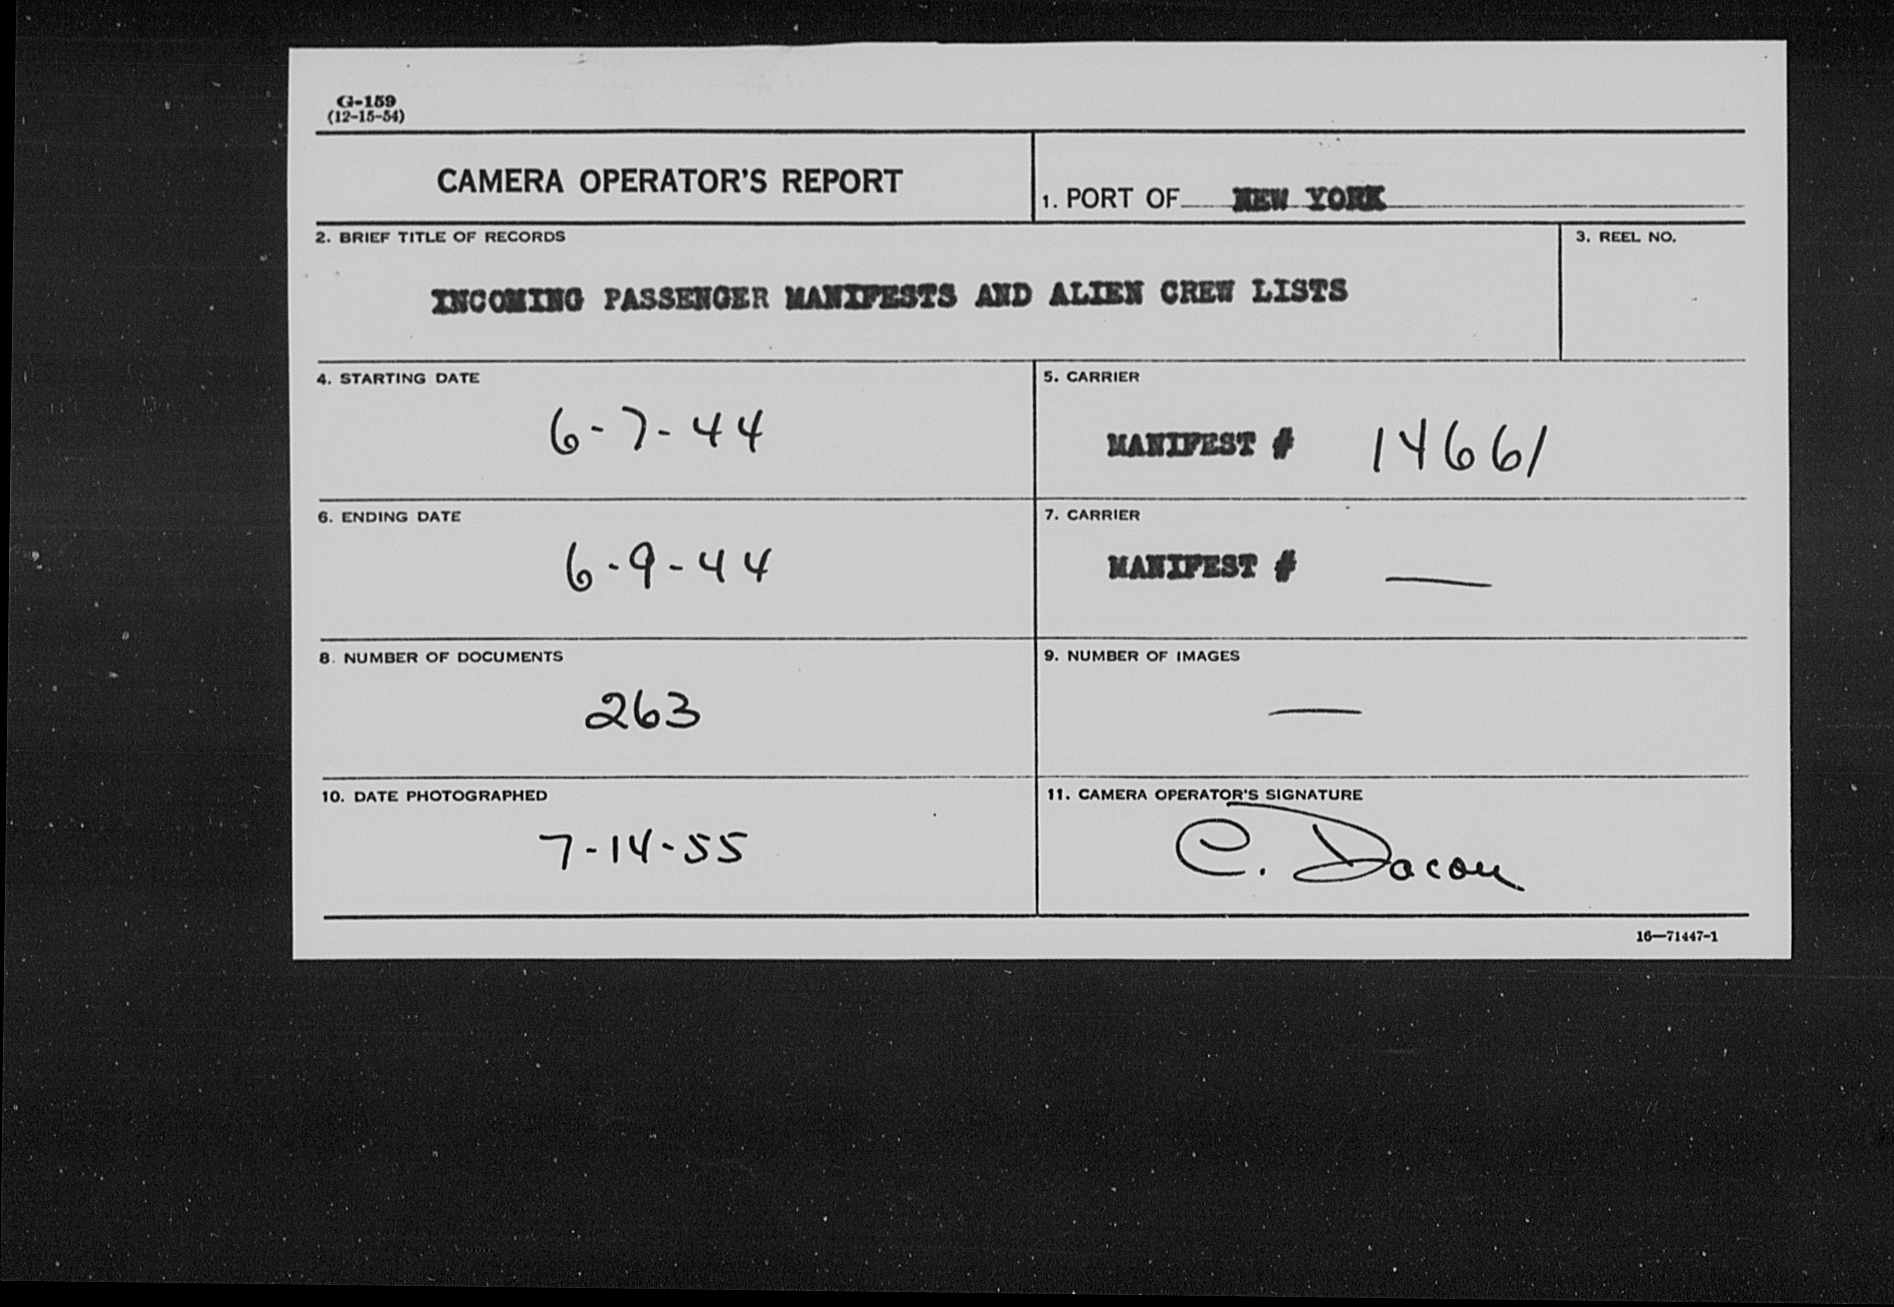 G-159
(12-15-54)
CAMERA OPERATOR'S REPORT
1. PORT OF NEW YORK
2. BRIEF TITLE OF RECORDS
3. REEL NO.
INCOMING PASSENGER MANIFESTS AND ALIEN CREW LISTS
4. STARTING DATE
5. CARRIER
6-7-44
MANIFEST # 14661
6. ENDING DATE
7. CARRIER
6-9-44
MANIFEST # —
8. NUMBER OF DOCUMENTS
9. NUMBER OF IMAGES
263
—
10. DATE PHOTOGRAPHED
11. CAMERA OPERATOR'S SIGNATURE
7-14-55
C. Dacou
16—71447-1